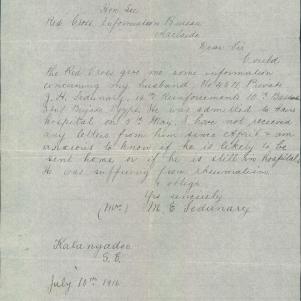 Hon Sec
Red Cross Information Bureau
Adelaide
Dear Sir
Could
the Red Cross give me some information
concerning my husband. No 4878 Private
J. H. Sedunary, 15th Reinforcements 10th
Brigade Egypt. He was admitted to
hospital on 5th May. I have not received
any letters from him since April & am
anxious to know if he is likely to be
sent home or if he is still in hospital
He was suffering from rheumatism.
& oblige
Yrs sincerely
(Mrs) M. E Sedunary
Kalangadoo
S. E.
July 10th 1916